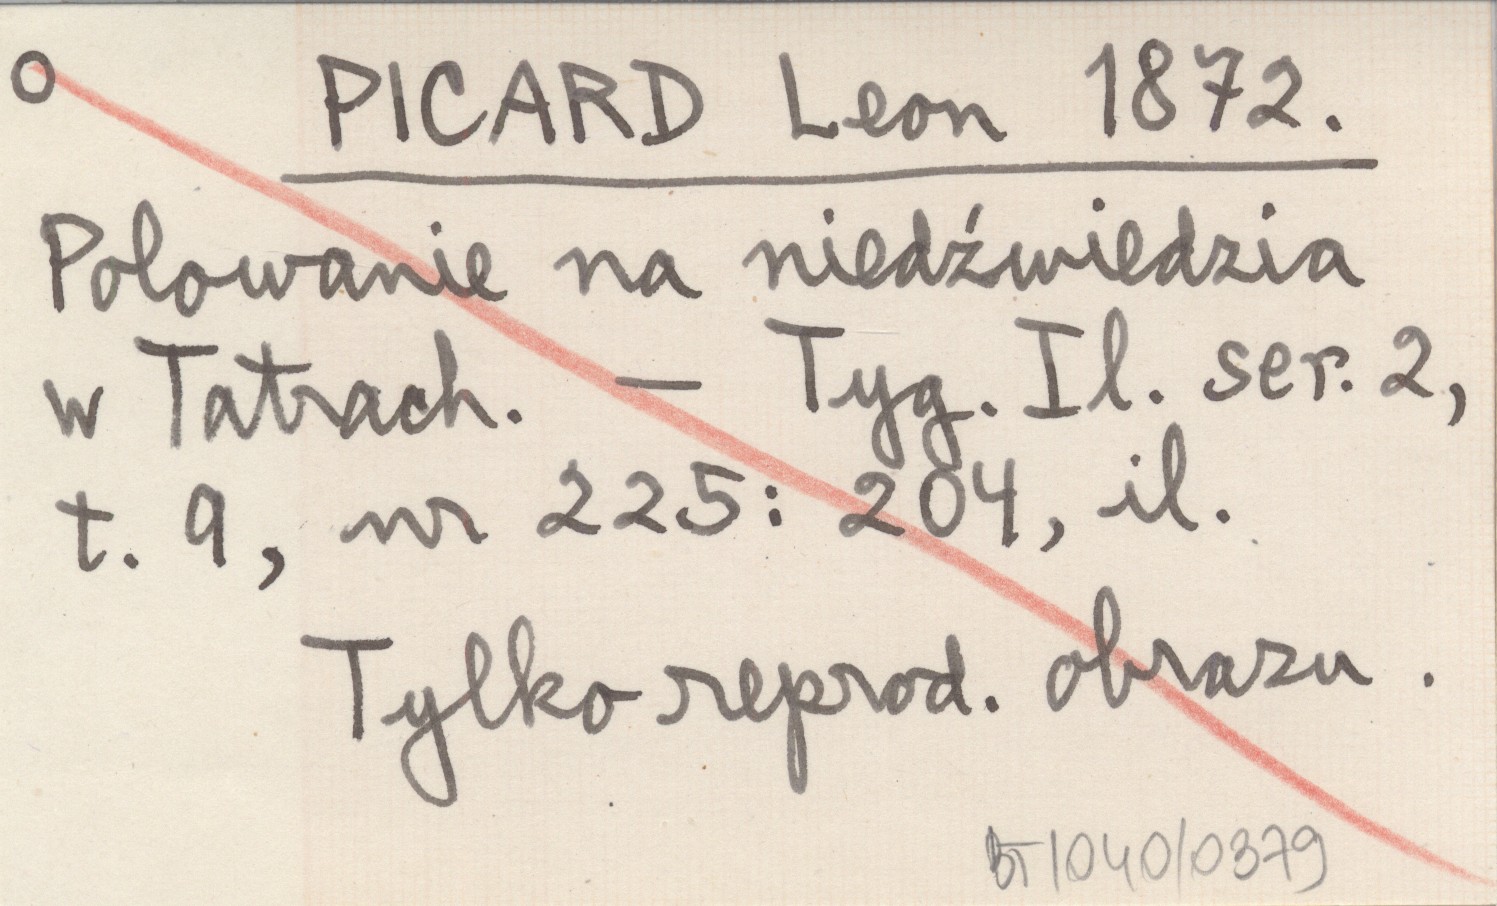 o PICARD Leon 1872.
Polowanie na niedźwiedzia
w Tatrach. — Tyg. Il. ser. 2,
t. 9, nr 225: 204, il.
Tylko reprod. obrazu.
BT/040/0379